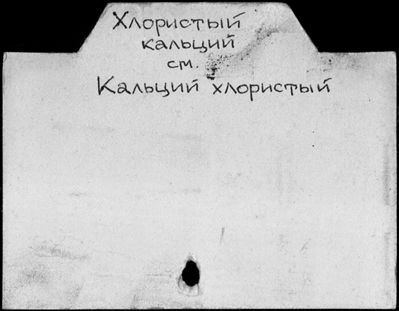 Хлористый
кальций
см.
Кальций хлористый